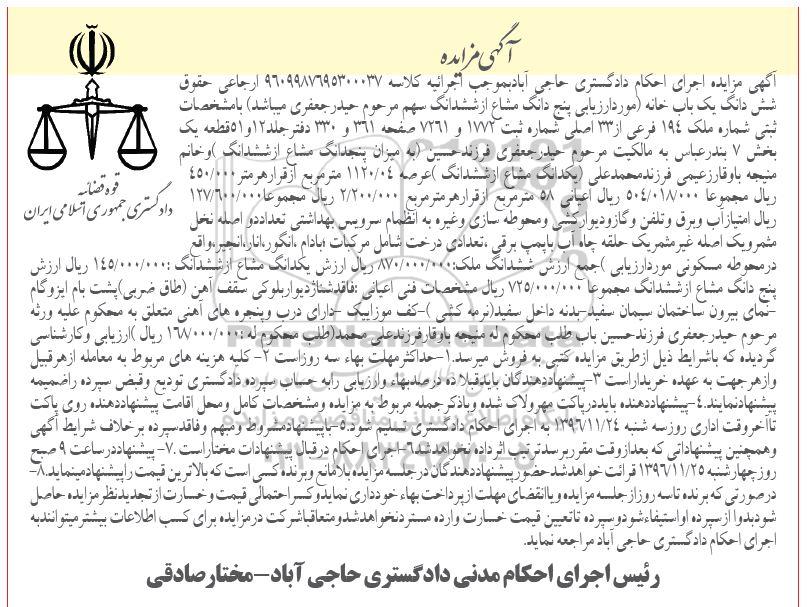 آگهی مزایده
آگهی مزایده اجرای احکام دادگستری حاجی آبادبموجب اجرائیه کلاسه ۹۶۰۹۹۸۷۶۹۵۳۰۰۰۳۷ ارجاعی حقوق
شش دانگ یک باب خانه (موردارزیابی پنج دانگ مشاع ازششدانگ سهم مرحوم حیدرجعفری میباشد) بامشخصات
ثبتی شماره ملک ۱۹۴ فرعی از۳۳ اصلی شماره ثبت ۱۷۷۲ و ۷۲۶۱ صفحه ۳۶۱ و ۳۳۰ دفترجلد۱۲و۵۱قطعه یک
بخش ۷ بندرعباس به مالکیت مرحوم حیدرجعفری فرزندحسین (به میزان پنجدانگ مشاع ازششدانگ )وخانم
منیجه باوقارزعیمی فرزندمحمدعلی (یکدانگ مشاع ازششدانگ )عرصه ۱۱۲۰/۰۴ مترمربع ازقرارهرمتر۴۵۰/۰۰۰
ریال مجموعا ۵۰۴/۰۱۸/۰۰۰ ریال اعیانی ۵۸ مترمربع ازقرارهرمترمربع ۲/۲۰۰/۰۰۰ ریال مجموعا۱۲۷/۶۰۰/۰۰۰
ریال امتیازآب وبرق وتلفن وگازودیوارکشی ومحوطه سازی وغیره به انظمام سرویس بهداشتی تعداددو اصله نخل
مثمرویک اصله غیرمثمریک حلقه چاه آب باپمپ برقی ،تعدادی درخت شامل مرکبات ،بادام ،انگور،انار،انجیر،واقع
درمحوطه مسکونی موردارزیابی )جمع ارزش ششدانگ ملک:۸۷۰/۰۰۰/۰۰۰ ریال ارزش یکدانگ مشاع ازششدانگ :۱۴۵/۰۰۰/۰۰۰ ریال ارزش
پنج دانگ مشاع ازششدانگ مجموعا ۷۲۵/۰۰۰/۰۰۰ ریال مشخصات فنی اعیانی :فاقدشناژدیواربلوکی سقف آهن (طاق ضربی)پشت بام ایزوگام
-نمای بیرون ساختمان سیمان سفید-بدنه داخل سفید(نرمه کشی )-کف موزاییک -دارای درب وپنجره های آهنی متعلق به محکوم علیه ورثه
مرحوم حیدرجعفری فرزندحسین باب طلب محکوم له منیجه باوقارفرزندعلی محمد(طلب محکوم له :۱۶۸/۰۰۰/۰۰۰ ریال )ارزیابی وکارشناسی
گردیده که باشرایط ذیل ازطریق مزایده کتبی به فروش میرسد.۱-حداکثرمهلت بهاء سه روزاست ۲- کلیه هزینه های مربوط به معامله ازهرقبیل
وازهرجهت به عهده خریداراست ۳-پیشنهاددهندگان بایدقبلاده درصدبهاء وارزیابی رابه حساب سپرده دادگستری تودیع وقبض سپرده راضمیمه
پیشنهادنمایند.۴-پیشنهاددهنده بایددرپاکت مهرولاک شده وباذکرجمله مربوط به مزایده ومشخصات کامل ومحل اقامت پیشنهاددهنده روی پاکت
تاآخروقت اداری روزسه شنبه ۱۳۹۶/۱۱/۲۴ به اجرای احکام دادگستری تسلیم شود.۵-باپیشنهادمشروط ومبهم وفاقدسپرده برخلاف شرایط آگهی
وهمچنین پیشنهاداتی که بعدازوقت مقرربرسدترتیب اثرداده نخواهدشد.۶-اجرای احکام درقبال پیشنهادات مختاراست .۷- پیشنهاددرساعت ۹ صبح
روزچهارشنبه ۱۳۹۶/۱۱/۲۵ قرائت خواهدشدحضورپیشنهاددهندگان درجلسه مزایده بلامانع وبرنده کسی است که بالاترین قیمت راپیشنهادمینماید.۸-
درصورتی که برنده تاسه روزازجلسه مزایده وباانقضای مهلت ازپرداخت بهاء خودداری نمایدوکسراحتمالی قیمت وخسارت ازتجدیدنظرمزایده حاصل
شودبدوا ازسپرده اواستیفاءشودوسپرده تاتعیین قیمت خسارت وارده مستردنخواهدشدومتعاقباشرکت درمزایده برای کسب اطلاعات بیشترمیتوانندبه
اجرای احکام دادگستری حاجی آباد مراجعه نماید.
رئیس اجرای احکام مدنی دادگستری حاجی آباد-مختارصادقی
قوه قضائیه
دادگستری جمهوری اسلامی ایران